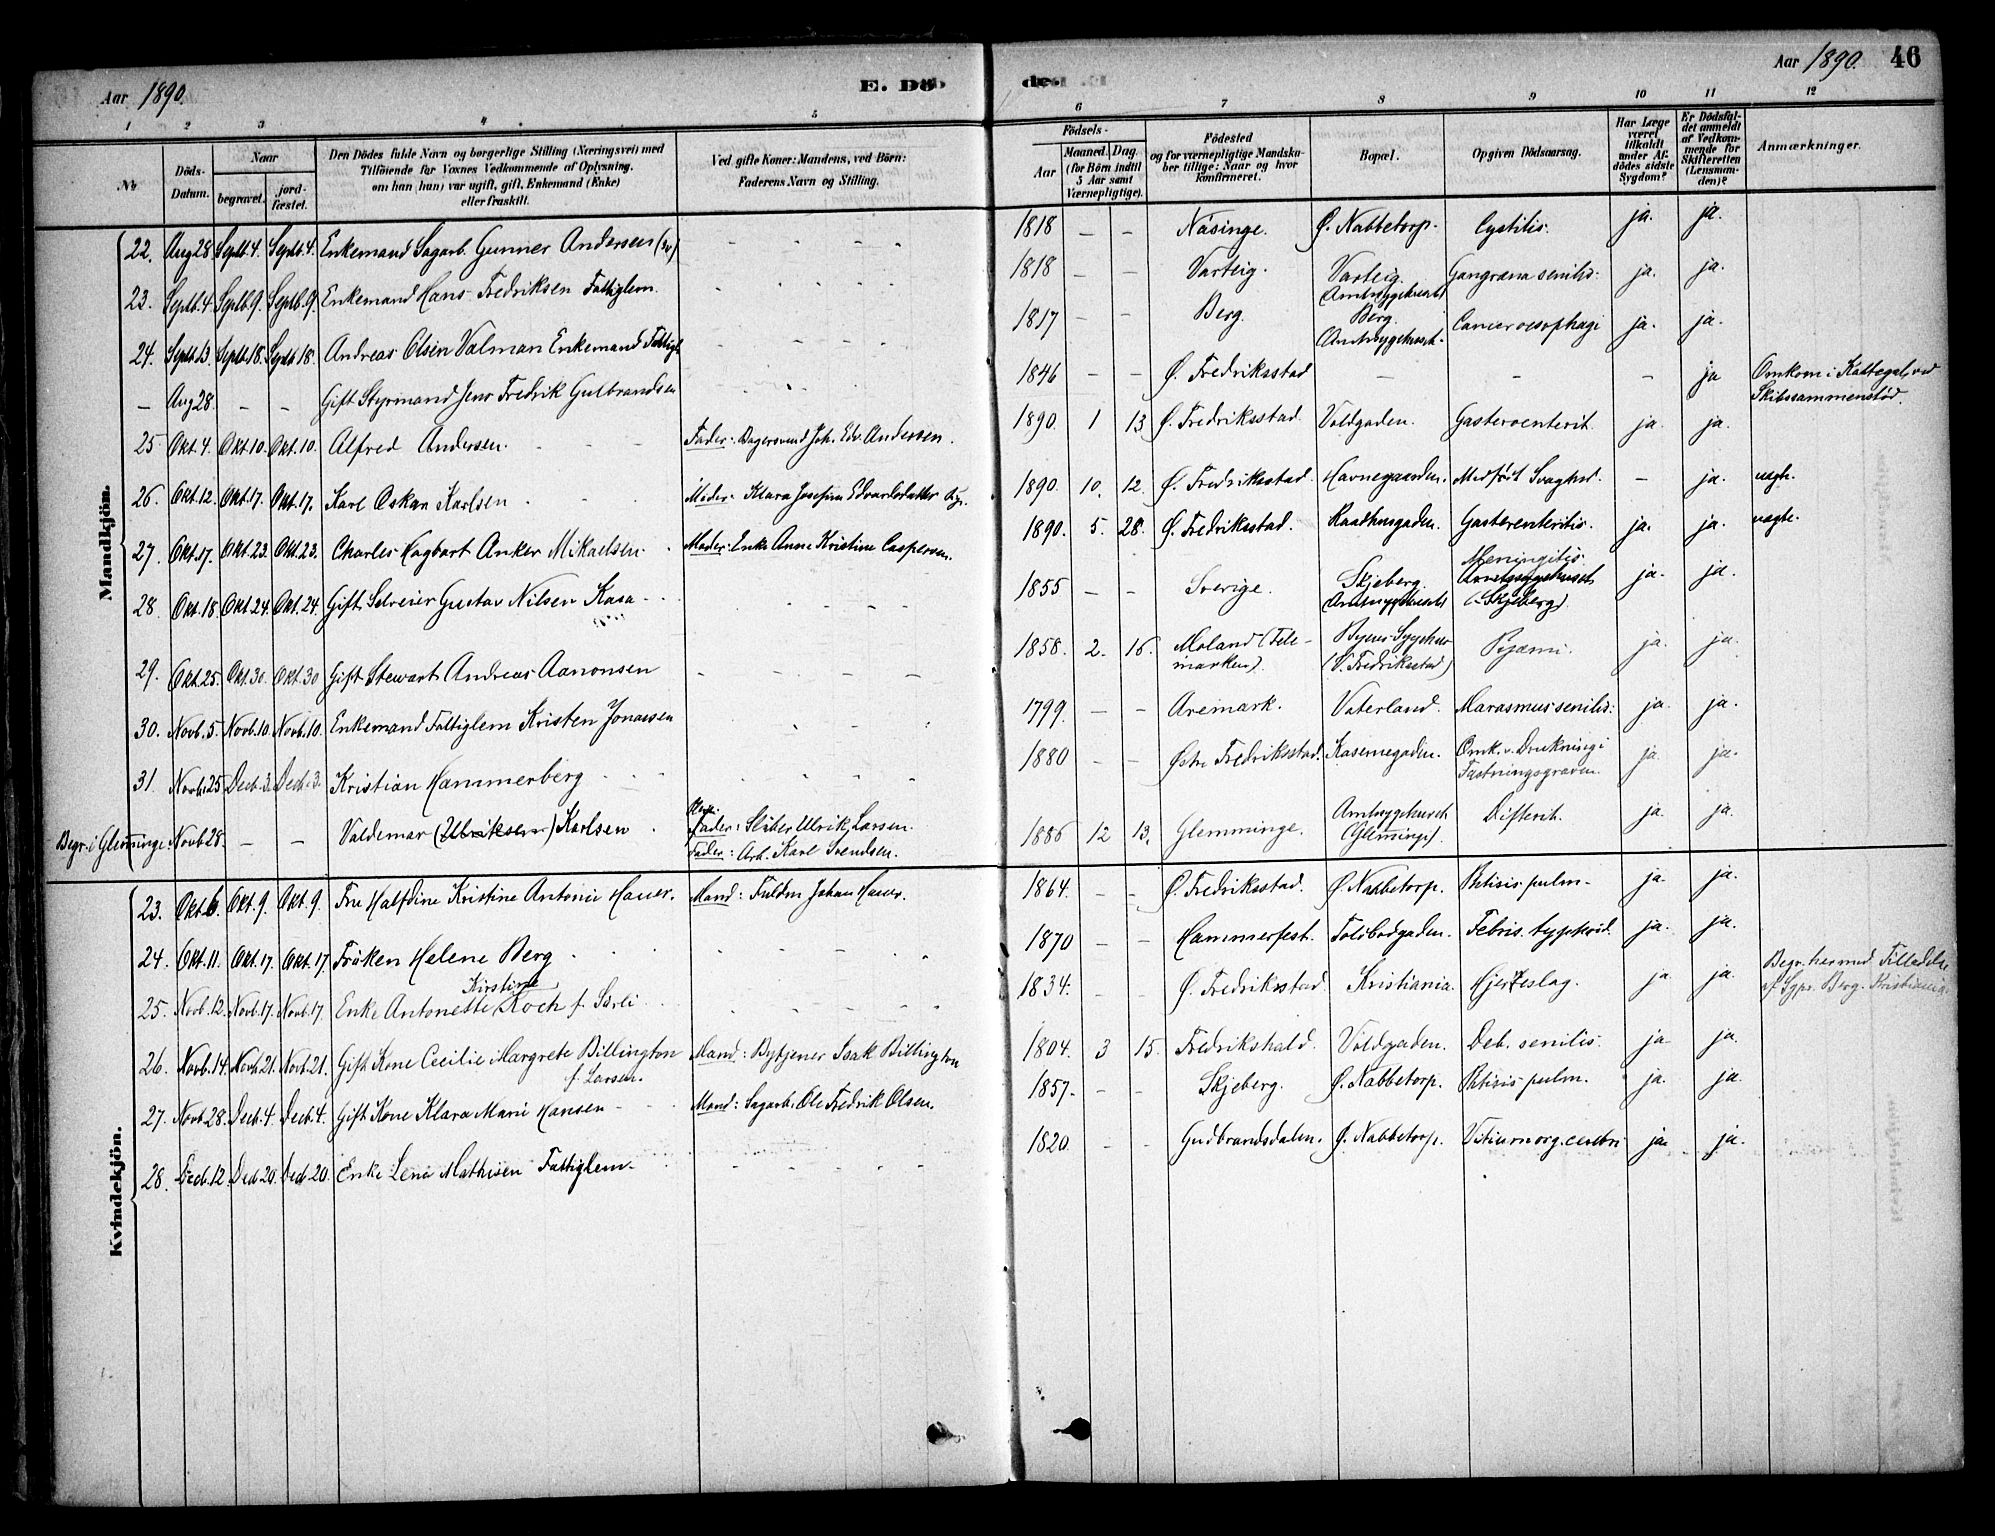 Aar 1890.
E. Döde.
Aar 1890. 46
1 2 3 4 5
6 7 8 9 10 11 12
No
Döds-Datum.
Naar
begravet.
jord-fæstet.
Den Dödes fulde Navn og borgerlige Stilling (Næringsvei) med
Tilföiende for Voxnes Vedkommende af Oplysning,
om han (hun) var ugift, gift, Enkemand (Enke)
eller fraskilt.
Ved gifte Koner: Mandens, ved Börn:
Faderens Navn og Stilling.
Födsels-
Aar
Maaned. Dag.
(for Börn indtil
5 Aar samt
Værnepligtige).
Födested
og for værnepligtige Mandska-
ber tillige: Naar og hvor
konfirmeret.
Bopæl.
Opgiven Dödsaarsag.
Har Læge
været
tilkaldt
under Af-
dødes sidste
Sygdom?
Er Dödsfal-
det anmeldt
af Vedkom-
mende for
Skifteretten
(Lensman-
den)?
Anmærkninger.
Mandkjön.
22. Aug 28 Septb. 4. Septb. 4. Enkemand Sagarb. Gunner Andersen - - - - 1818 - - Näsinge. Ø. Nabbetorp. Cystitis. ja. ja.
23. Septb. 4. Septb. 9. Septb. 9. Enkemand Hans Fredriksen Fattiglem. - - - - 1818 - - Varteig. Varteig. Amtssygehuset Gangræna senilis. ja. ja.
24. Septb. 13 Septb. 18. Septb. 18. Andreas Olsen Valman Enkemand Fattigl. - - - - 1817 - - Berg. Berg. Amtssygehuset. Cancer oesophagi ja. ja.
- Aug 28. - - Gift Styrmand Jens Fredrik Gulbrandsen 1846 - - Ø. Fredriksstad - - - ja Omkom i Kattegat, ved
Skibssammenstöd.
25 Okt. 4. Okt. 10. Okt. 10. Alfred Andersen. Fader: Bagersvend Joh. Edv. Andersen. 1890. 1 13. Ø. Fredriksstad. Voldgaden. Gasteroenterit. ja. ja.
26. Okt. 12. Okt. 17. Okt. 17. Karl Oskar Karlsen Moder: Klara Josefine Edvardsdatter 1890. 10. 12. Ø. Fredriksstad. Havnegaarden. Medfödt Svaghed. - ja. uægte.
27. Okt. 17. Okt. 23. Okt. 23. Charles Hagbart Anker Mikaelsen. Moder: Enke Anne Kristine Caspersen. 1890. 5. 28. Ø. Fredriksstad. Raadhusgaden. Gasterenteritis. ja. ja. uægte.
28. Okt. 18. Okt. 24. Okt. 24. Gift Selveier Gustav Nilsen Kasa - - - - 1855 - - Sverige. Skjeberg. Amtssygehuset Meningitis. Amtssygehuset (Skjeberg). ja. ja.
29. Okt. 25. Okt. 30. Okt. 30 Gift Stewart Andreas Aanonsen - - - - 1858. 2. 16. Moland (Tele-
marken). Byens Sygehus
(V. Fredriksstad) Pyæmi. ja. ja.
30. Novb. 5. Novb. 10. Novb. 10. Enkemand Fattiglem Kristen Jonassen 1799. - - Aremark. Vaterland. Marasmus senilis. ja. ja.
31. Novb. 25 Decb. 3. Decb. 3. Kristian Hammerberg 1880 - - Østre Fredriksstad. Kasernegaden. Omk. v. Drukning i
Fæstningsgraven. ja. ja.
Begr. i Glemminge. Novb. 28. - - Valdemar (Ulriksen) Karlsen Fader: Sliber Ulrik Larsen.
Fader: Arb. Karl Svendsen. 1886 12 13. Glemminge. Amtssygehuset
(Glemminge). Difterit. ja. ja.
Kvindekjön.
23. Okt. 6. Okt. 9. Okt. 9. Fru Halfdine Kristine Antonie Hauer. Mand: Fuldm. Johan Hauer. 1864. - - Ø. Fredriksstad. Ø. Nabbetorp. Phtisis pulm. ja. ja.
24. Okt. 11. Okt. 17. Okt. 17. Fröken Helene Berg 1870 - - Hammerfest. Toldbodgaden. Febris typhoid. ja. ja.
25. Novb. 12. Novb. 17. Novb. 17. Enke Antonette Kirstine Koch f. Sørli 1834. - - Ø. Fredriksstad Kristiania. Hjerteslag. ja ja. Begr. her med Tilladelse
af Sgpr. Berg. Kristiania.
26. Novb. 14. Novb. 21. Novb. 21. Gift Kone Cecilie Margrete Billington
f. Larsen. Mand: Bytjener Isak Billington 1804. 3 15. Fredrikshald. Voldgaden. Deb. senilis. ja ja.
27. Novb. 28. Decb. 4. Decb. 4. Gift Kone Klara Marie Hansen Mand: Sagarb. Ole Fredrik Olsen. 1857. - - Skjeberg. Ø. Nabbetorp. Phtisis pulm. ja. ja.
28. Decb. 12. Decb. 20. Decb. 20. Enke Lene Mathisen Fattiglem. - - - - 1820. - - Gudbrandsdalen. Ø. Nabbetorp. Vitium org. cerebri ja. ja.